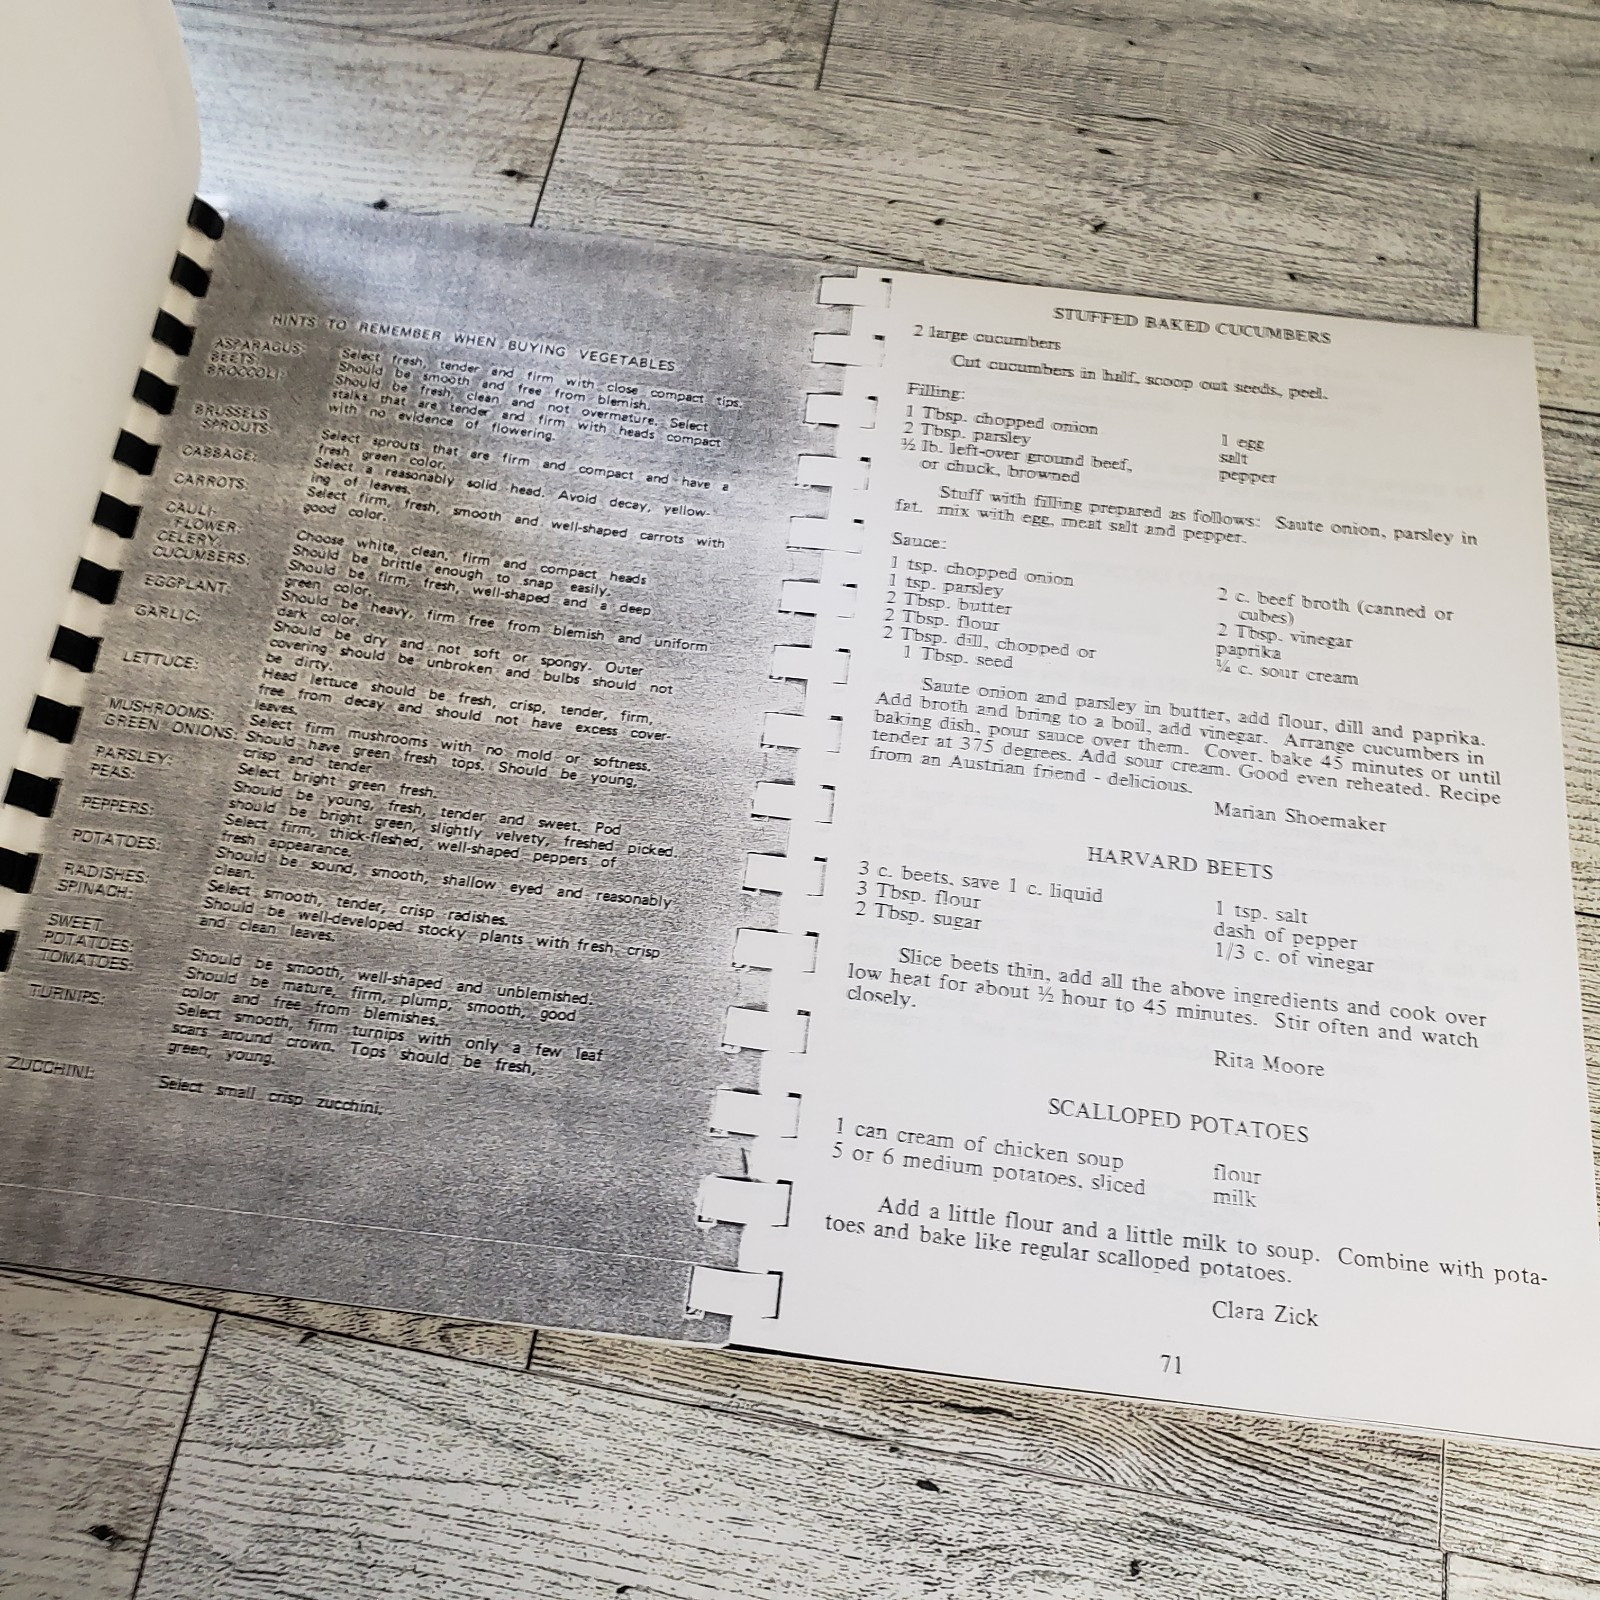 HINTS TO REMEMBER WHEN BUYING VEGETABLES
ASPARAGUS: Select fresh, tender and firm with close compact tips.
BEETS: Should be smooth and free from blemish.
BROCCOLI: Should be fresh, clean and not overmature. Select
stalks that are tender and firm with heads compact
with no evidence of flowering.
BRUSSELS
SPROUTS: Select sprouts that are firm and compact and have a
fresh green color.
CABBAGE: Select a reasonably solid head. Avoid decay, yellow-
ing of leaves.
CARROTS: Select firm, fresh, smooth and well-shaped carrots with
good color.
CAULI-
FLOWER: Choose white, clean, firm and compact heads
CELERY: Should be brittle enough to snap easily.
CUCUMBERS: Should be firm, fresh, well-shaped and a deep
green color.
EGGPLANT: Should be heavy, firm free from blemish and uniform
dark color.
GARLIC: Should be dry and not soft or spongy. Outer
covering should be unbroken and bulbs should not
be dirty.
LETTUCE: Head lettuce should be fresh, crisp, tender, firm,
free from decay and should not have excess cover-
leaves.
MUSHROOMS: Select firm mushrooms with no mold or softness.
GREEN ONIONS: Should have green fresh tops. Should be young,
crisp and tender
PARSLEY: Select bright green fresh.
PEAS: Should be young, fresh, tender and sweet. Pod
should be bright green, slightly velvety, freshed picked.
PEPPERS: Select firm, thick-fleshed, well-shaped peppers of
fresh appearance.
POTATOES: Should be sound, smooth, shallow eyed and reasonably
clean.
RADISHES: Select smooth, tender, crisp radishes.
SPINACH: Should be well-developed stocky plants with fresh, crisp
and clean leaves.
SWEET
POTATOES: Should be smooth, well-shaped and unblemished.
TOMATOES: Should be mature, firm, plump, smooth, good
color and free from blemishes.
TURNIPS: Select smooth, firm turnips with only a few leaf
scars around crown. Tops should be fresh,
green, young.
ZUCCHINI: Select small crisp zucchini.
STUFFED BAKED CUCUMBERS
2 large cucumbers
Cut cucumbers in half, scoop out seeds, peel.
Filling:
1 Tbsp. chopped onion
2 Tbsp. parsley
½ lb. left-over ground beef,
or chuck, browned
1 egg
salt
pepper
Stuff with filling prepared as follows: Saute onion, parsley in
fat. mix with egg, meat salt and pepper.
Sauce:
1 tsp. chopped onion
1 tsp. parsley
2 Tbsp. butter
2 Tbsp. flour
2 Tbsp. dill, chopped or
1 Tbsp. seed
2 c. beef broth (canned or
cubes)
2 Tbsp. vinegar
paprika
¼ c. sour cream
Saute onion and parsley in butter, add flour, dill and paprika.
Add broth and bring to a boil, add vinegar. Arrange cucumbers in
baking dish, pour sauce over them. Cover, bake 45 minutes or until
tender at 375 degrees. Add sour cream. Good even reheated. Recipe
from an Austrian friend - delicious.
Marian Shoemaker
HARVARD BEETS
3 c. beets, save 1 c. liquid
3 Tbsp. flour
2 Tbsp. sugar
1 tsp. salt
dash of pepper
1/3 c. of vinegar
Slice beets thin, add all the above ingredients and cook over
low heat for about ½ hour to 45 minutes. Stir often and watch
closely.
Rita Moore
SCALLOPED POTATOES
1 can cream of chicken soup
5 or 6 medium potatoes, sliced
flour
milk
Add a little flour and a little milk to soup. Combine with pota-
toes and bake like regular scalloped potatoes.
Clara Zick
71